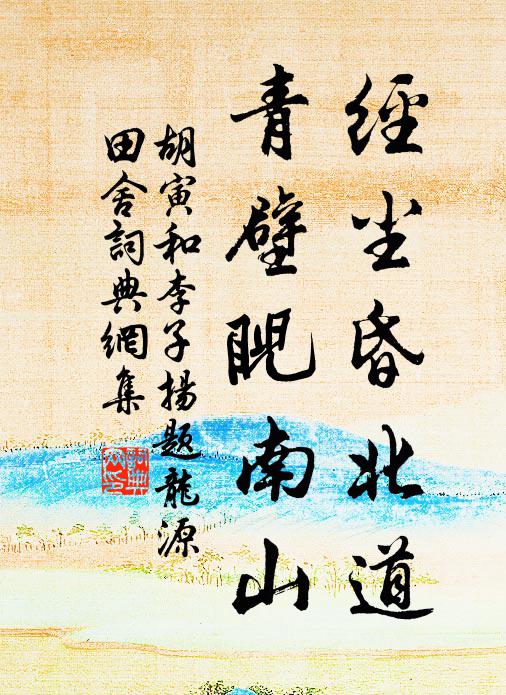 經尘昏北道
青壁睨南山
胡寅和李子揚題龍源
田舍詞典網集